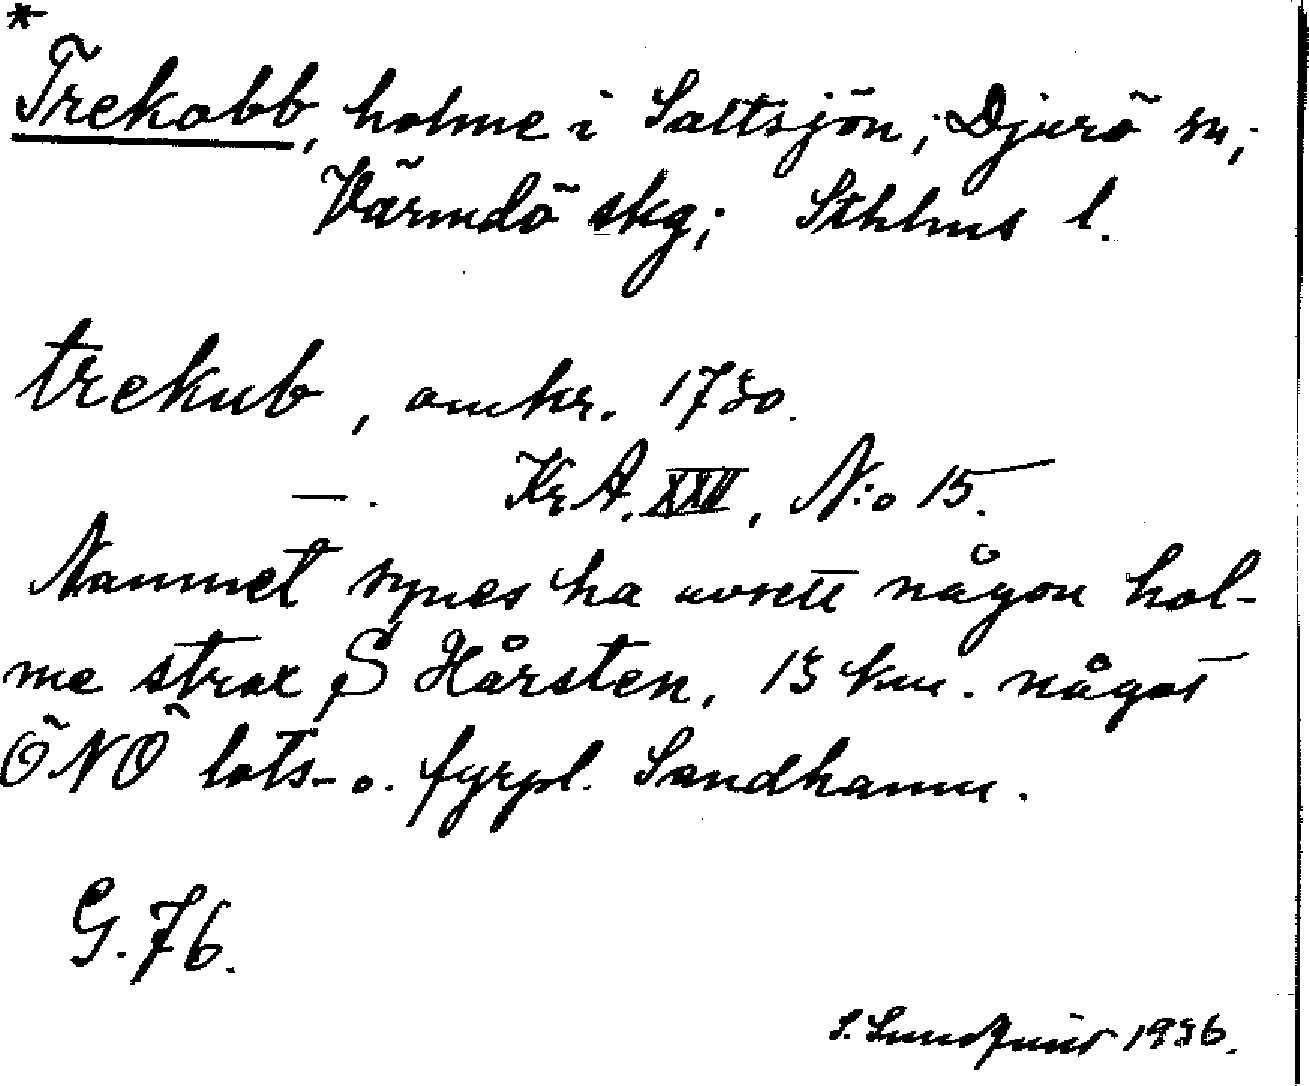 *
Trekobb, holme i Saltsjön; Djurö sn;
Värmdö skg; Sthlms l.
trekub, omkr. 1730.
—. KrA. XXII, N:o 15.
Namnet synes ha avsett någon hol-
me strax S Hårsten, 13 km. något
ÖNÖ lots- o. fyrpl. Sandhamn.
G. 76.
S. Sundquist 1936.